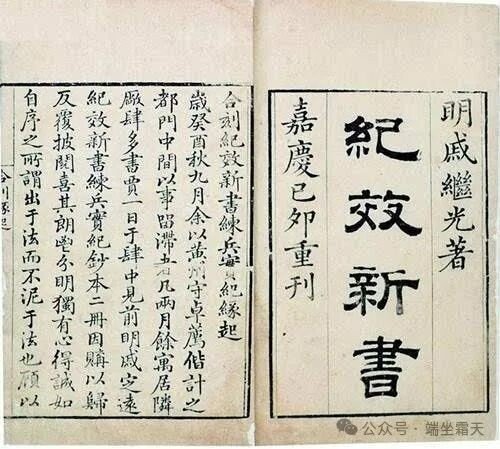 明戚繼光著
紀效新書
嘉慶己夘重刊
合刻紀效新書練兵實紀緣起
歲癸酉秋九月余以黃州守卓薦偕計之
都門中間以事畱滯者凡兩月餘寓居隣
厰肆多書賈一日于肆中見前明戚定遠
紀效新書練兵實紀鈔本二冊因購以歸
反覆披閱喜其朗鬯分明獨有心得誠如
自序之所謂出于法而不泥于法也顧以
公众号 · 端坐霜天